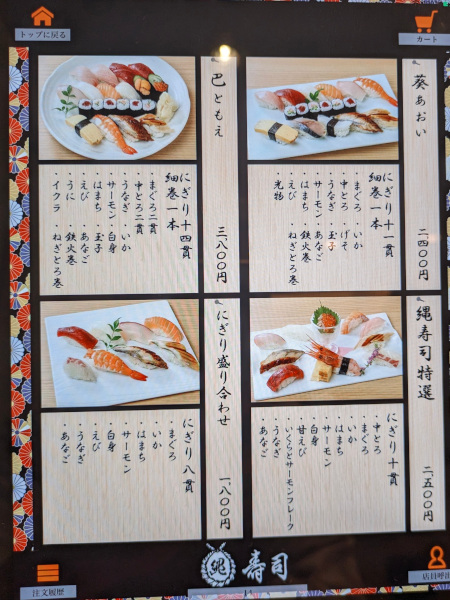 トップに戻る
カート
葵 あおい
二四〇〇円
にぎり十一貫
細巻一本
・まぐろ ・いか
・中とろ ・げそ
・うなぎ ・玉子
・サーモン ・あなご
・はまち
・えび
・光物 ・ねぎとろ巻
巴 ともえ
三八〇〇円
にぎり十四貫
細巻一本
・まぐろ二貫
・中とろ二貫
・うなぎ ・いか
・サーモン ・白身
・はまち ・玉子
・えび ・あなご
・うに ・鉄火巻
・イクラ ・ねぎとろ巻
縄寿司特選
二、五〇〇円
にぎり十貫
・中とろ
・まぐろ
・いか
・はまち
・サーモン
・白身
・甘えび
・いくらとサーモンフレーク
・うなぎ
・あなご
にぎり盛り合わせ
一、八〇〇円
にぎり八貫
・まぐろ
・いか
・はまち
・サーモン
・白身
・えび
・うなぎ
・あなご
注文履歴
縄 寿司
店員呼出